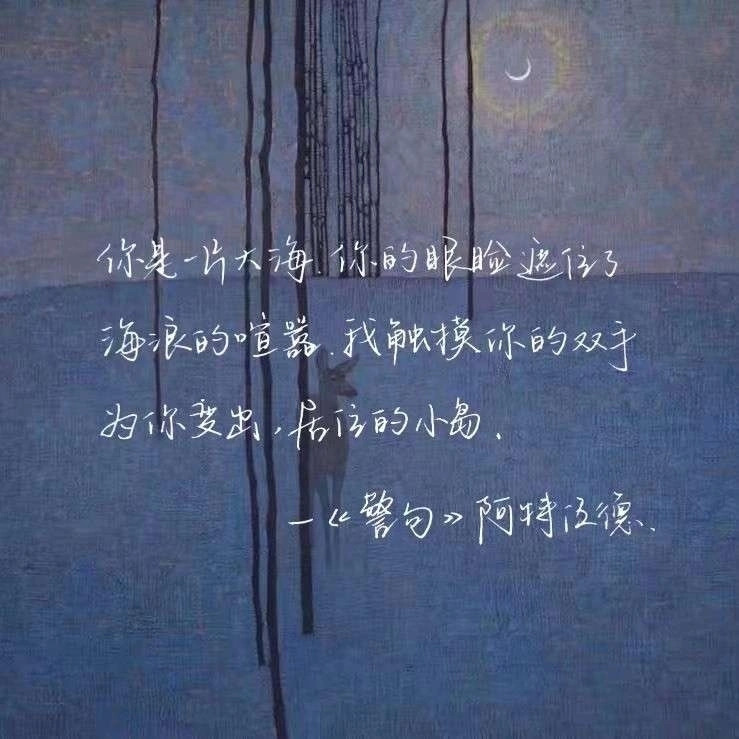 你是一片大海.你的眼睑遮住了
海浪的喧嚣.我触摸你的双手
为你变出,居住的小岛.
—《警句》阿特伍德.